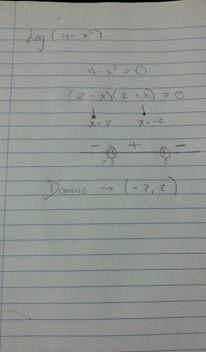 Log(4-x²)
4-x²>0
(2-x)(2+x)>0
x=2 x=-2
- + -
-2 2
Dominio → (-2,2)